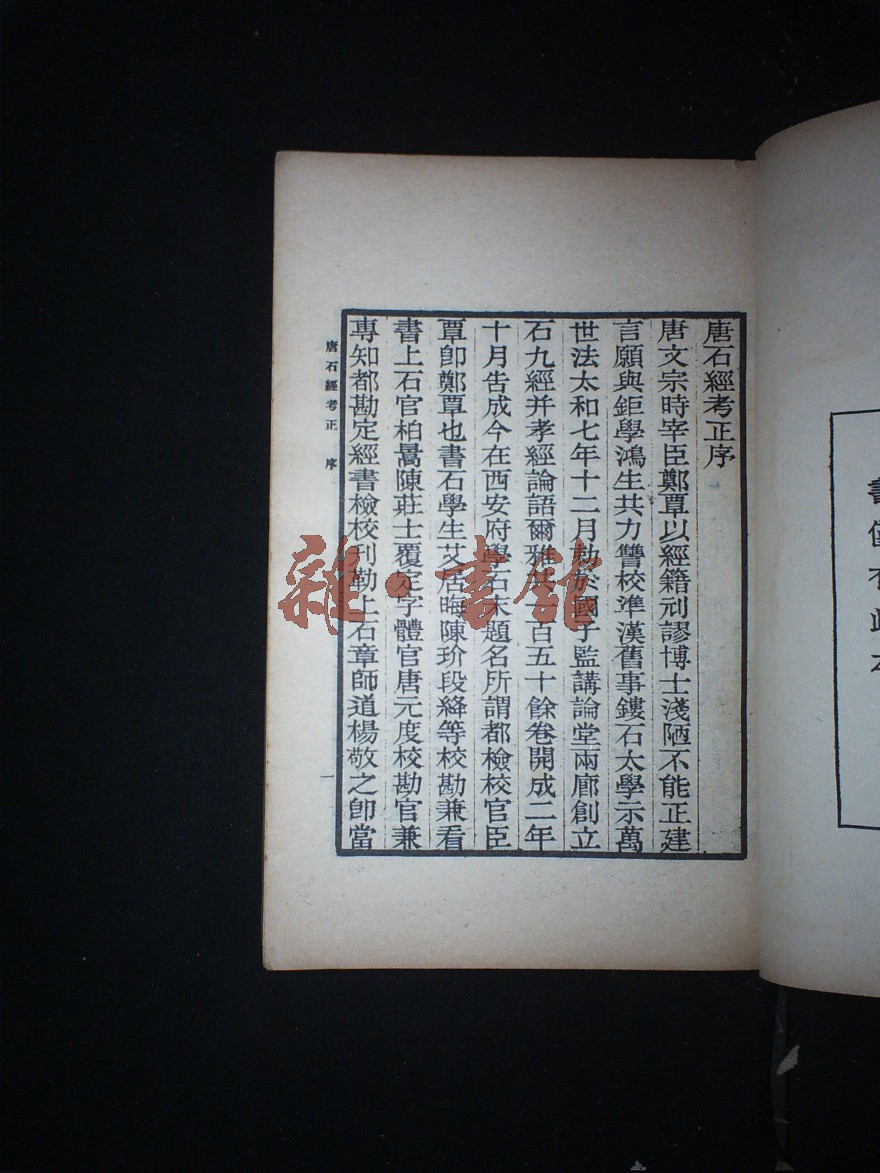 唐石經考正序
唐文宗時宰臣鄭覃以經籍刓謬博士淺陋不能正建
言願與鉅學鴻生共力讐校準漢舊事鏤石太學示萬
世法太和七年十二月勅於國子監講論堂兩廊創立
石九經并孝經論語爾雅共一百五十餘卷開成二年
十月告成今在西安府學石末題名所謂都檢校官臣
覃卽鄭覃也書石學生艾居晦陳玠段絳等校勘兼看
書上石官柏暠陳莊士覆定字體官唐元度校勘官兼
專知都勘定經書檢校刊勒上石章師道楊敬之卽當
唐石經考正 序
一
雜·書館